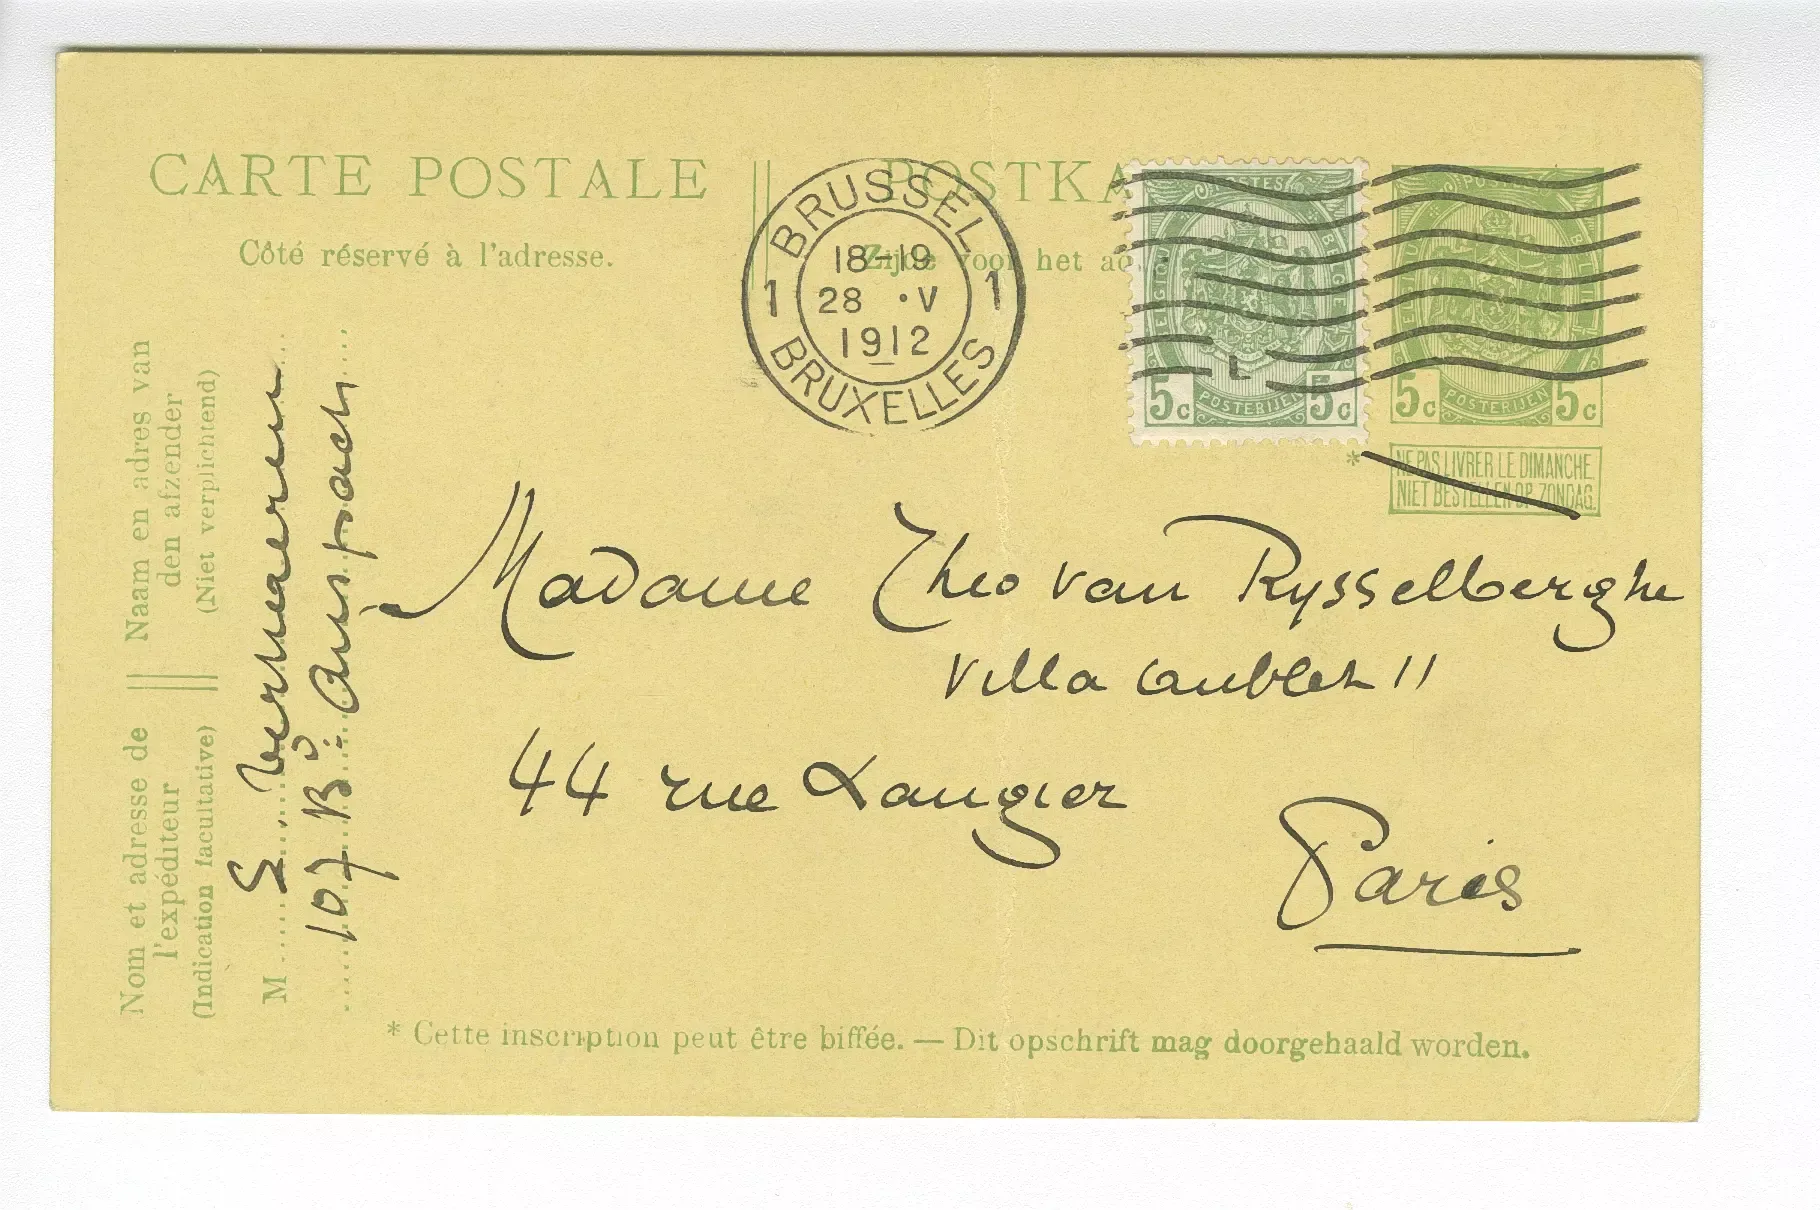 CARTE POSTALE
POSTKA
Côté réservé à l'adresse.
Zijde voor het ad
BRUSSEL
18-19
1 28 · V 1
1912
BRUXELLES
POSTES
BELGIQUE
BELGIË
L
5c POSTERIJEN 5c
POSTES
5c POSTERIJEN 5c
* NE PAS LIVRER LE DIMANCHE.
NIET BESTELLEN OP ZONDAG.
Madame Theo van Rysselberghe
Villa Aublet 11
44 rue Laugier
Paris
Naam en adres van
den afzender
(Niet verplichtend)
Nom et adresse de
l'expéditeur
(Indication facultative)
M
107 Bd. Anspach
* Cette inscription peut être biffée. — Dit opschrift mag doorgehaald worden.